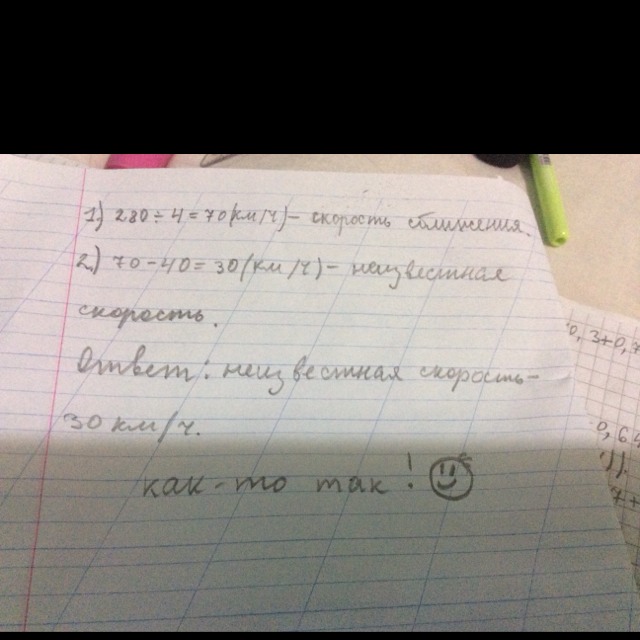 1) 280÷4=70(км/ч)- скорость сближения.
2) 70-40=30(км/ч)- неизвестная
скорость.
Ответ: неизвестная скорость-
30 км/ч.
как-то так!
0,3+0,7
0,64